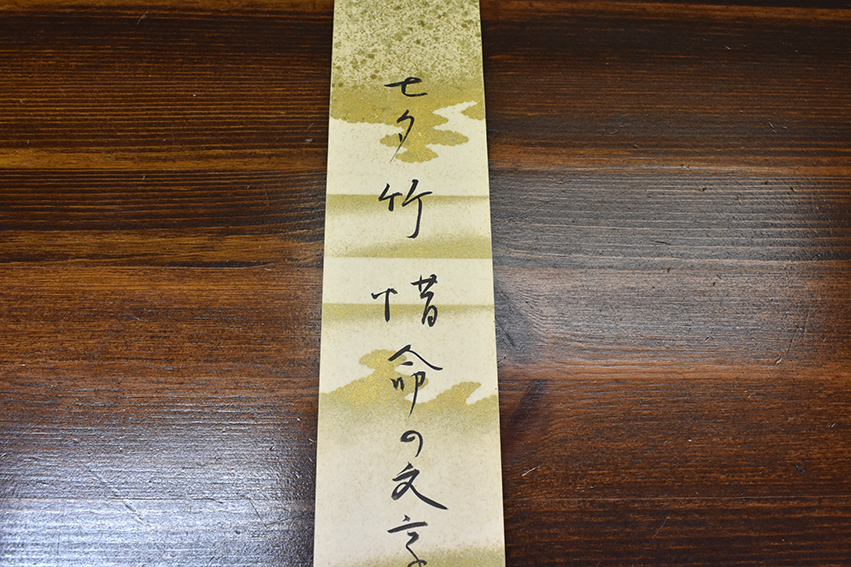 七夕竹惜命の文字